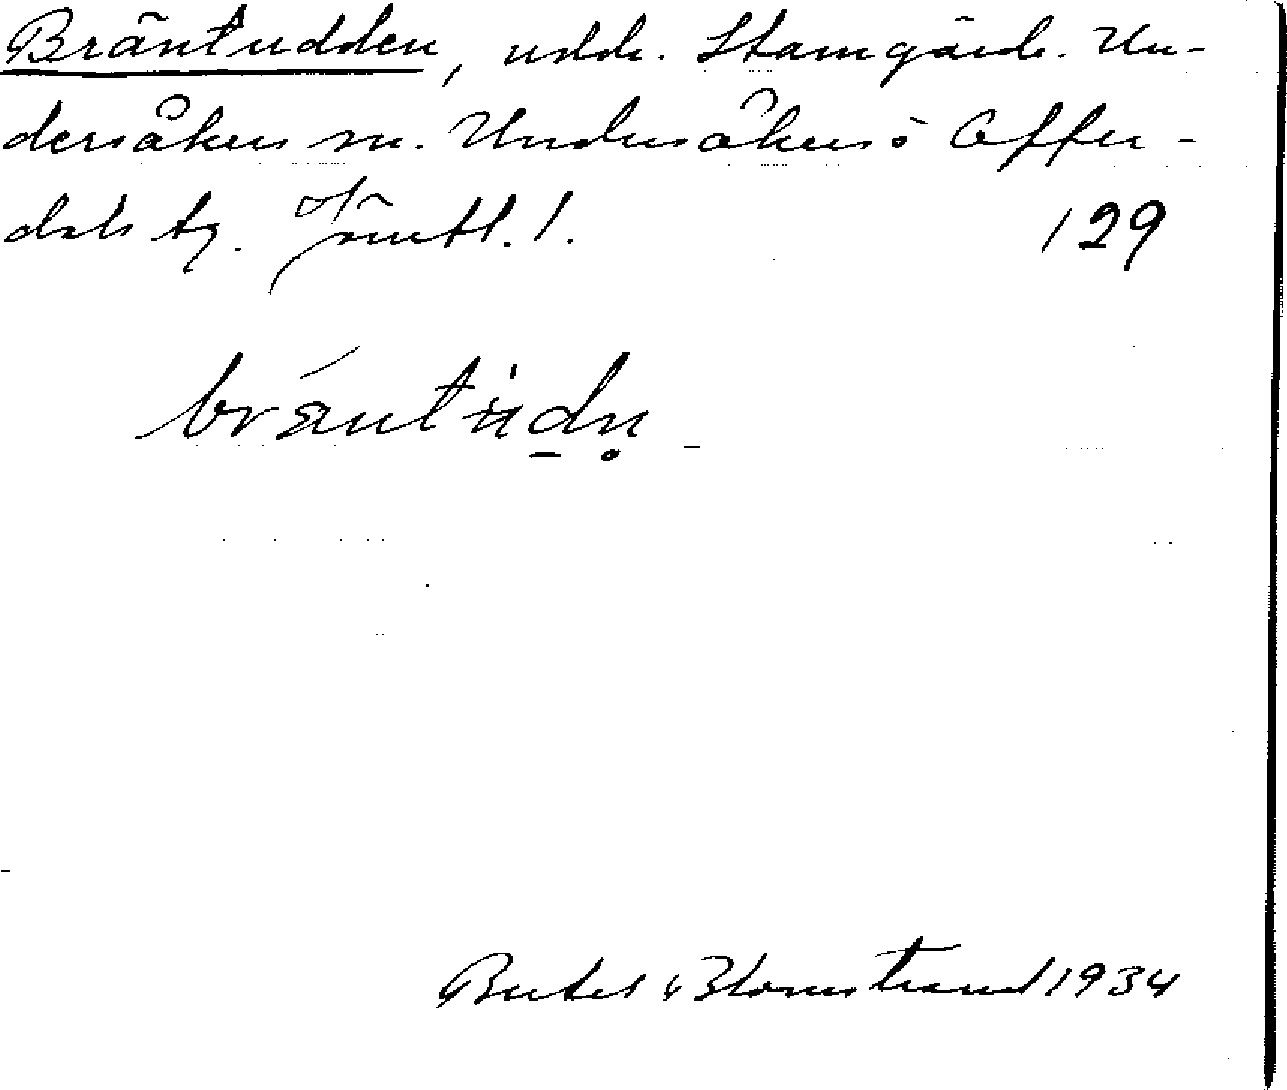 Bräntudden, udde. Stamgärde. Un-
dersåkers sn. Undersåkers o Offer-
dals tg. Jämtl. l. 129
bräntùdn
Bertel Blomstrand 1934